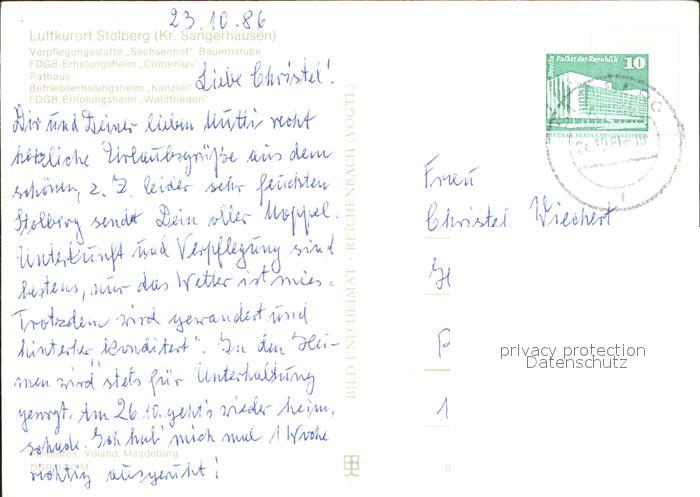 23.10.86
Luftkurort Stolberg (Kr. Sangerhausen)
Verpflegungsstätte „Sachsenhof", Bauernstube
FDGB-Erholungsheim „Comenius"
Rathaus
Betriebserholungsheim „Kanzler"
FDGB-Erholungsheim „Waldfrieden"
Liebe Christel!
Dir und Deiner lieben Mutti recht
herzliche Urlaubsgrüße aus dem
schönen, z. Z. leider sehr feuchten
Stolberg sendet Dein oller Moppel.
Unterkunft und Verpflegung sind
bestens, nur das Wetter ist mies.
Trotzdem wird gewandert und
hinterher „konditert". In den Hei-
men wird stets für Unterhaltung
gesorgt. Am 26.10. geht's wieder heim,
schade. Ich hab' mich mal 1 Woche
richtig ausgeruht!
Voland, Magdeburg
BILD UND HEIMAT · REICHENBACH (VOGTL)
Berlin, Palast der Republik
10
DDR
Frau
Christel Wiechert
H
P
1
privacy protection
Datenschutz